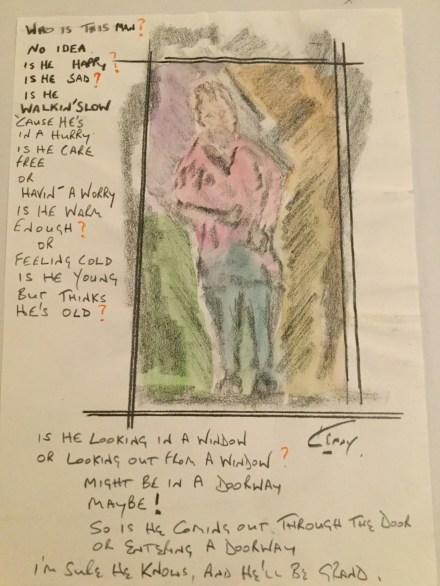 WHO IS THIS MAN?
NO IDEA
IS HE HAPPY?
IS HE SAD?
IS HE
WALKIN' SLOW
'CAUSE HE'S
IN A HURRY
IS HE CARE
FREE
OR
HAVIN' A WORRY
IS HE WARM
ENOUGH?
OR
FEELING COLD
IS HE YOUNG
BUT THINKS
HE'S OLD?
IS HE LOOKING IN A WINDOW
OR LOOKING OUT FROM A WINDOW?
MIGHT BE IN A DOORWAY
MAYBE!
SO IS HE COMING OUT THROUGH THE DOOR
OR ENTERING A DOORWAY
I'M SURE HE KNOWS, AND HE'LL BE GRAND.